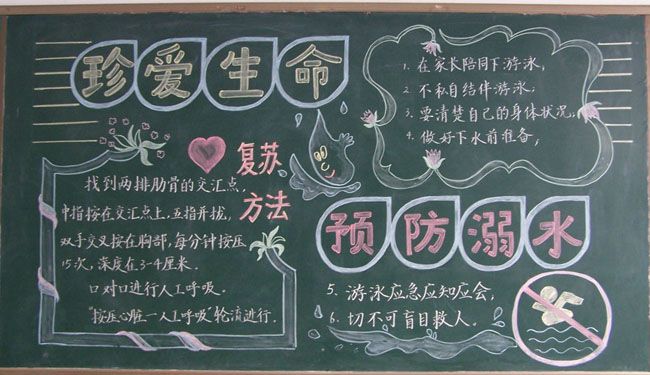 珍爱生命
复苏
方法
找到两排肋骨的交汇点,
中指按在交汇点上,五指并拢,
双手交叉按在胸部,每分钟按压
15次,深度在3-4厘米.
口对口进行人工呼吸.
"按压心脏一人工呼吸"轮流进行.
1. 在家长陪同下游泳,
2. 不私自结伴游泳,
3. 要清楚自己的身体状况,
4. 做好下水前准备,
预防溺水
5. 游泳应急应知应会,
6. 切不可盲目救人.